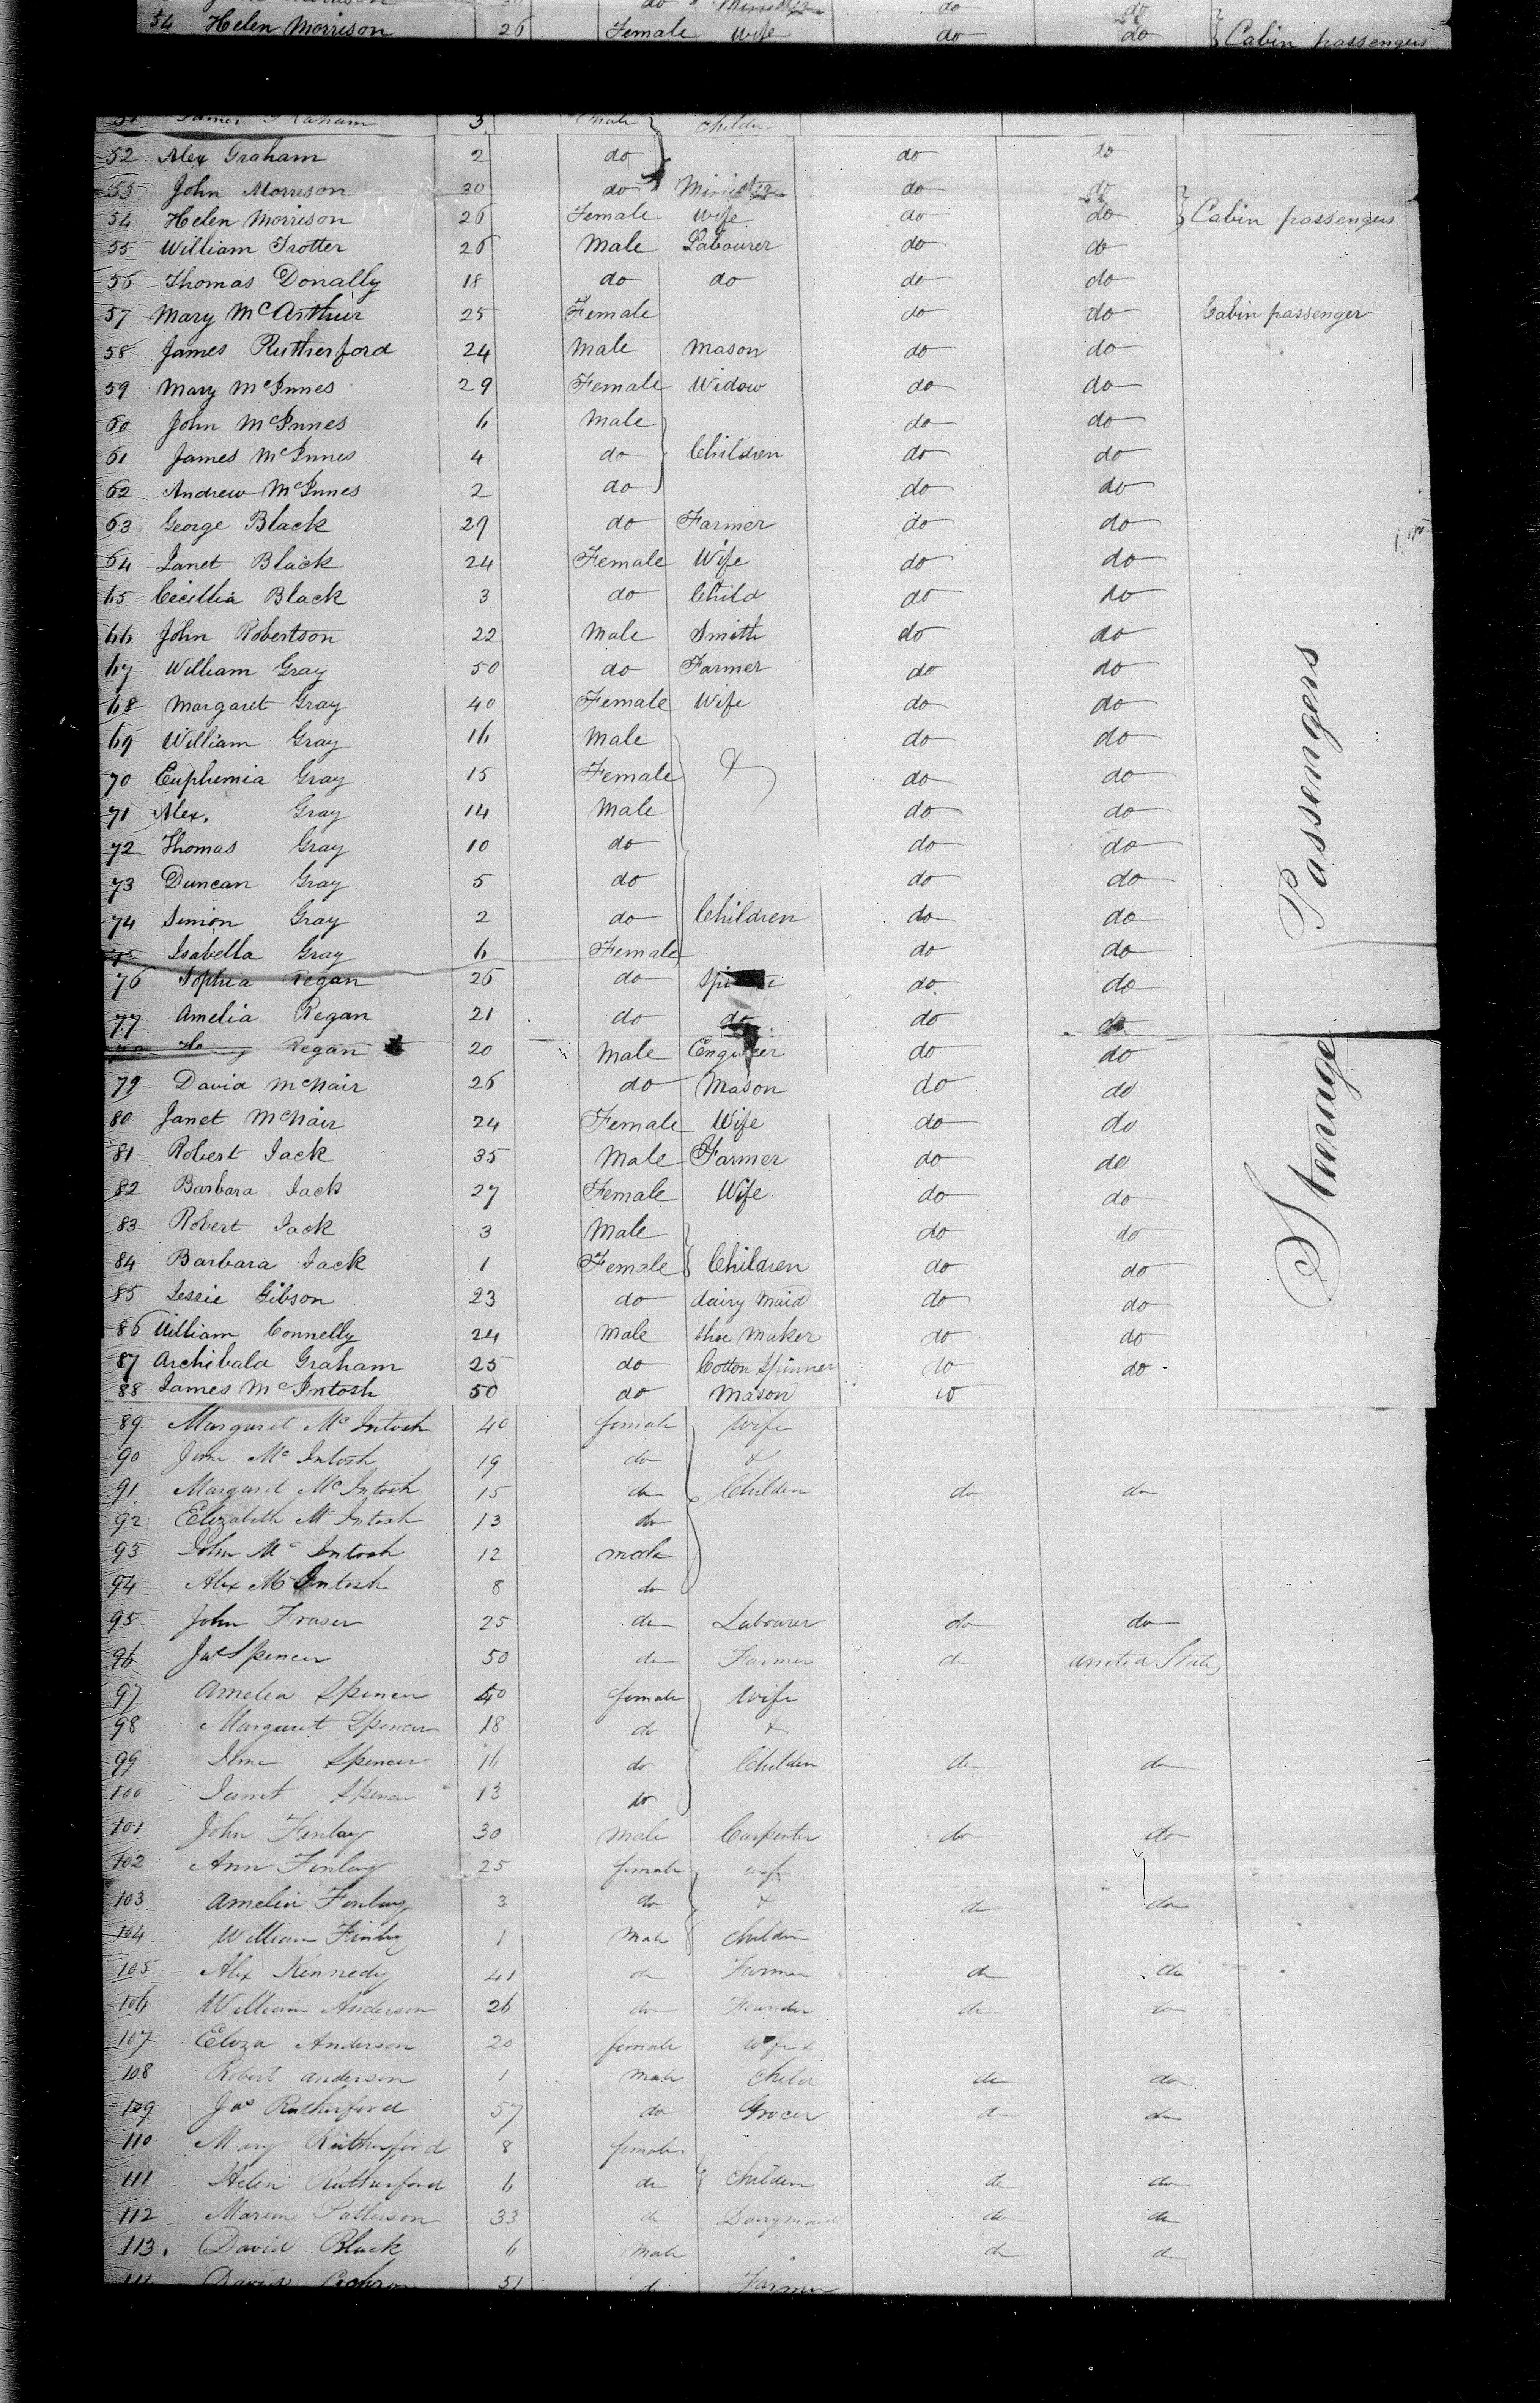 do Minister do do
54 Helen Morrison 26 Female Wife do do } Cabin passengers
51 James Graham 3 Male Childn
52 Alex Graham 2 do do do
53 John Morrison 30 do Minister do do
54 Helen Morrison 26 Female Wife do do } Cabin passengers
55 William Trotter 26 Male Labourer do do
56 Thomas Donally 18 do do do do
57 Mary McArthur 25 Female do do Cabin passenger
58 James Rutherford 24 Male Mason do do
59 Mary McInnes 29 Female Widow do do
60 John McInnes 6 Male do do
61 James McInnes 4 do Children do do
62 Andrew McInnes 2 do do do
63 George Black 29 do Farmer do do
64 Janet Black 24 Female Wife do do
65 Cecillia Black 3 do Child do do
66 John Robertson 22 Male Smith do do
67 William Gray 50 do Farmer do do
68 Margaret Gray 40 Female Wife do do
69 William Gray 16 Male do do
70 Euphemia Gray 15 Female & do do
71 Alex. Gray 14 Male do do
72 Thomas Gray 10 do do do
73 Duncan Gray 5 do do do
74 Simon Gray 2 do Children do do
75 Isabella Gray 6 Female do do
76 Sophia Regan 26 do do do
77 Amelia Regan 21 do do do do
Regan 20 Male Engineer do do
79 David McNair 26 do Mason do do
80 Janet McNair 24 Female Wife do do
81 Robert Jack 35 Male Farmer do do
82 Barbara Jack 27 Female Wife do do
83 Robert Jack 3 Male do do
84 Barbara Jack 1 Female Children do do
85 Jessie Gibson 23 do dairy maid do do
86 William Connelly 24 Male Shoe Maker do do
87 Archibald Graham 25 do Cotton Spinner do do
88 James McIntosh 50 do Mason do
Steerage Passengers
89 Margaret McIntosh 40 female Wife
90 Jane McIntosh 19 do &
91 Margaret McIntosh 15 do Children do do
92 Elizabeth McIntosh 13 do
93 John McIntosh 12 male
94 Alex McIntosh 8 do
95 John Fraser 25 do Labourer do do
96 Jas Spencer 50 do Farmer do United States
97 Amelia Spencer 40 female Wife
98 Margaret Spencer 18 do &
99 Spencer 16 do Children do do
100 Janet Spencer 13 do
101 John Finlay 30 Male Carpenter do do
102 Ann Finlay 25 female wife
103 Amelia Finlay 3 do & do do
104 William Finlay 1 Male children
105 Alex Kennedy 41 do Farmer do do
106 William Anderson 26 do Founder do do
107 Eliza Anderson 20 female wife &
108 Robert Anderson 1 Male child do do
109 Jas Rutherford 57 do Grocer do do
110 Mary Rutherford 8 female
111 Helen Rutherford 6 do children do do
112 Marion Patterson 33 do Dairymaid do do
113. David Black 6 Male do do
David Cochron 51 do Farmer